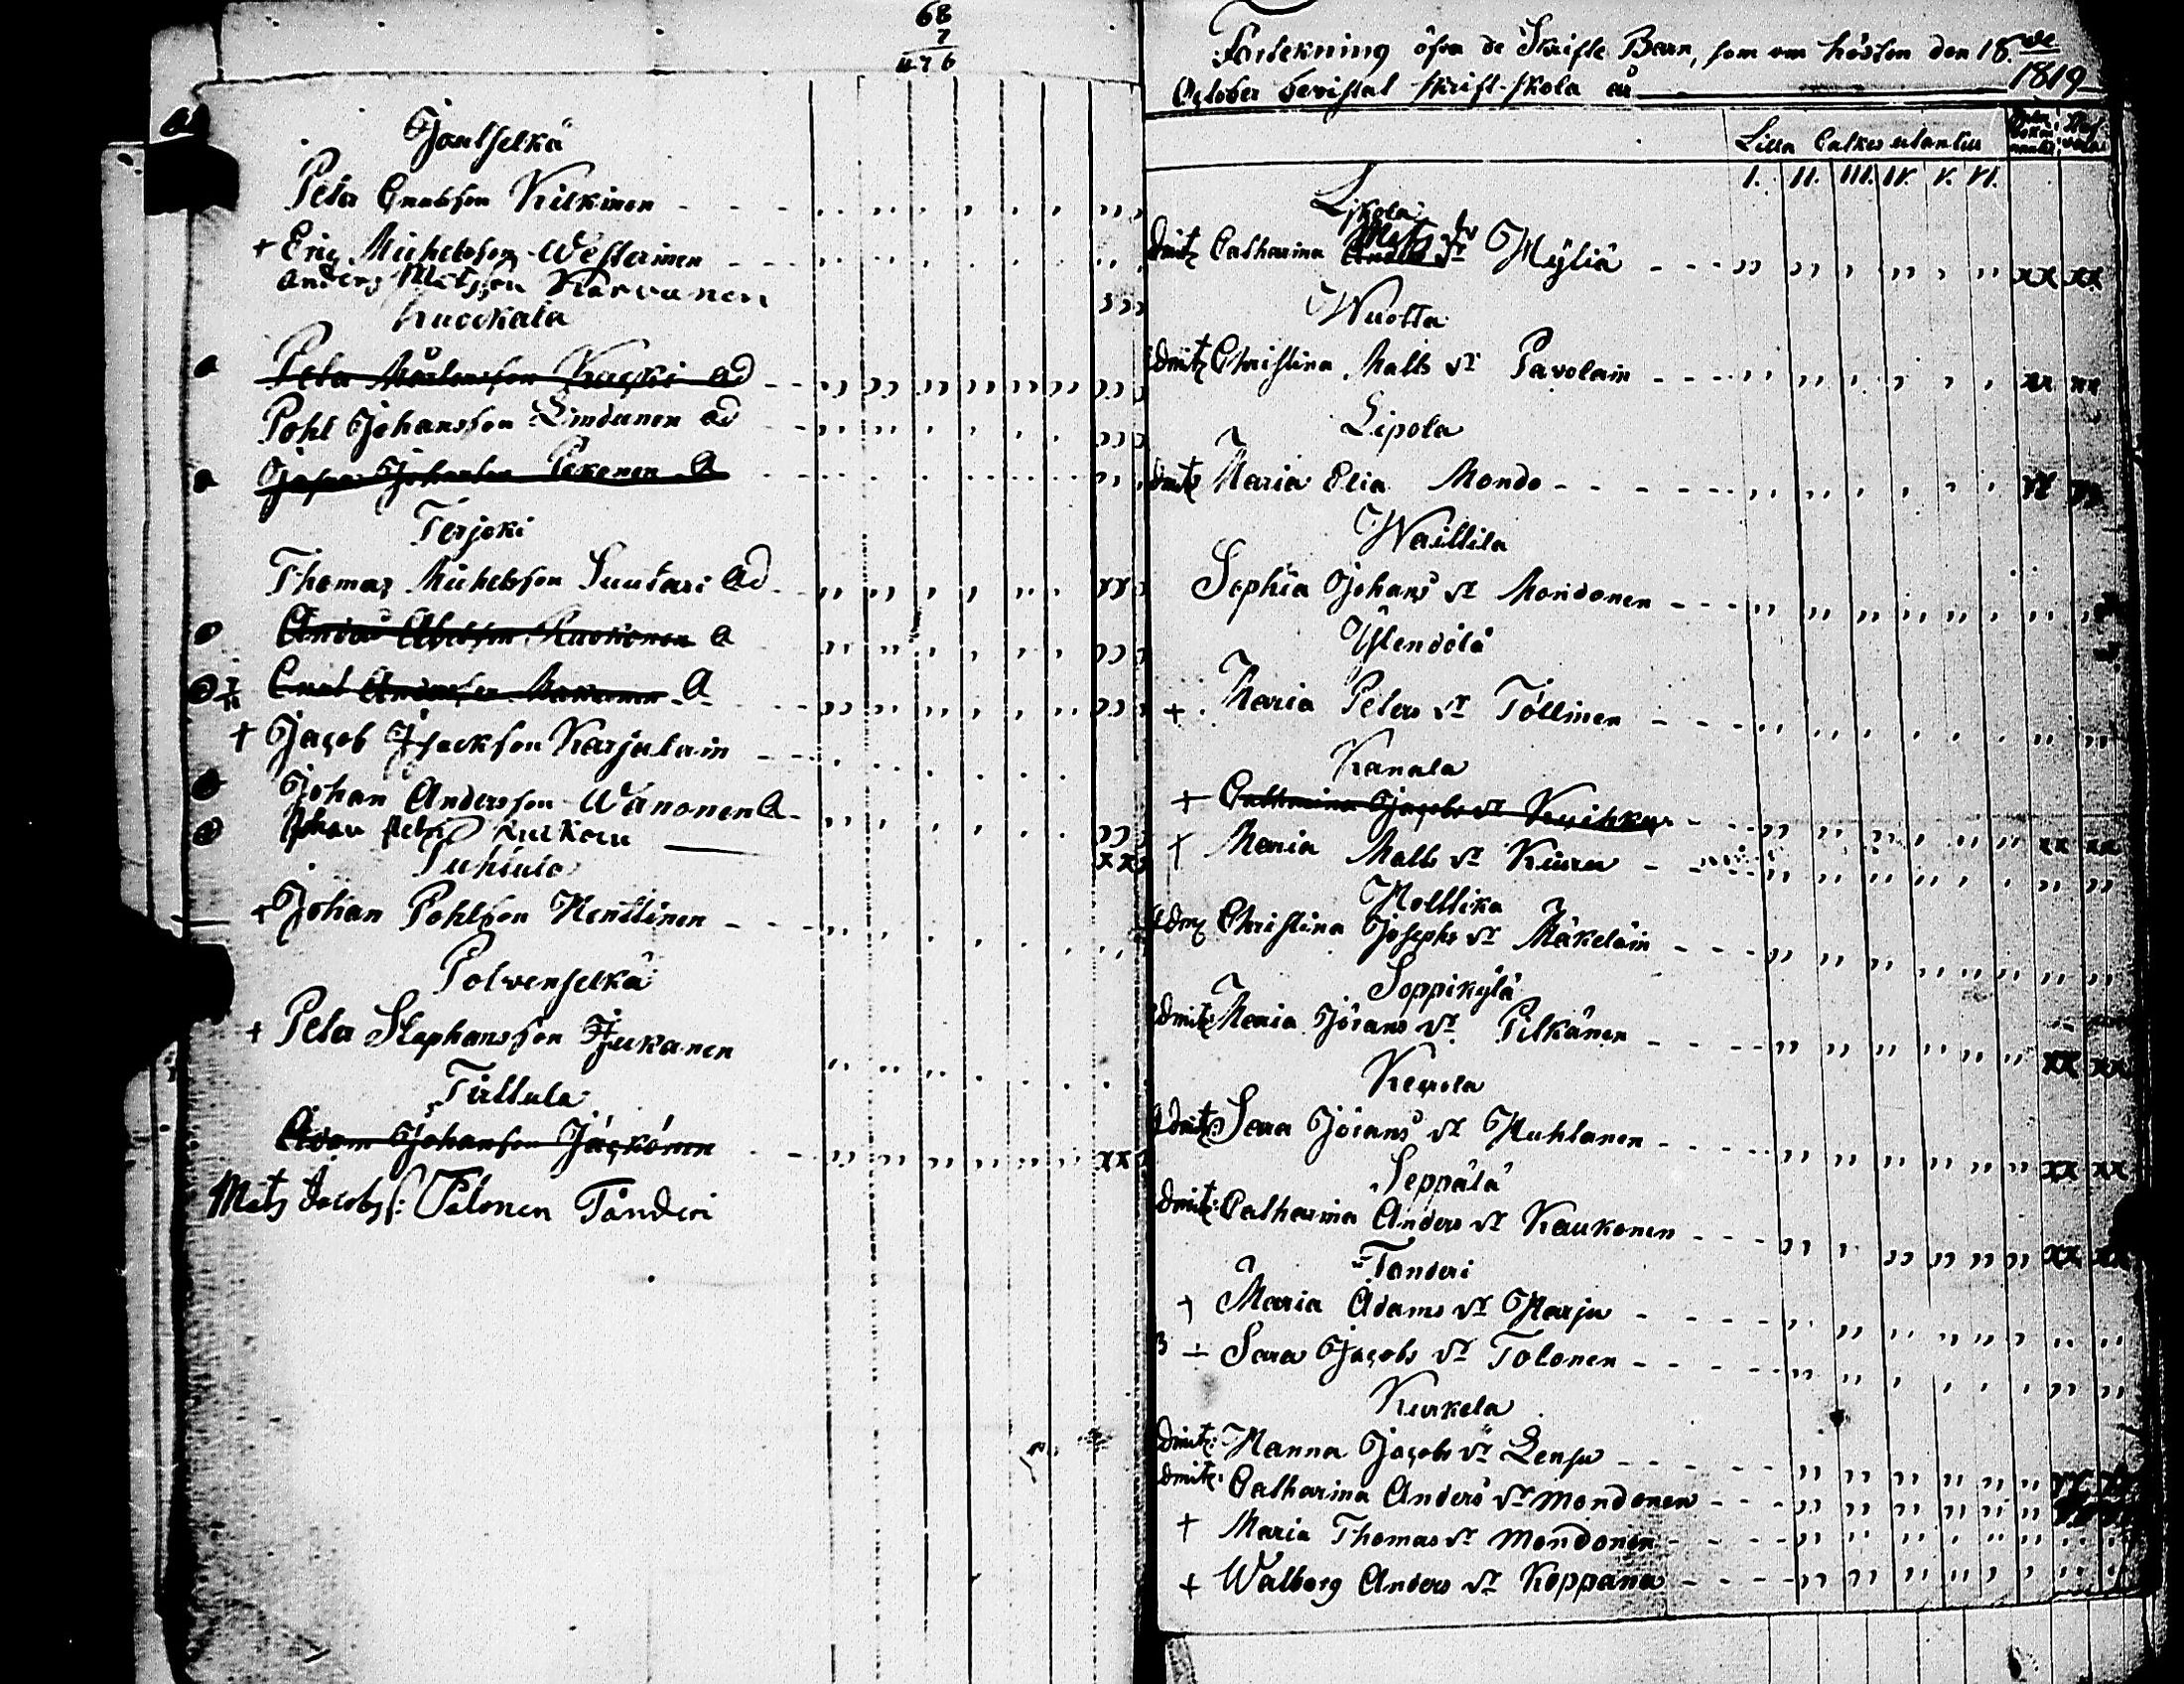 68
7
476
Joutselkä
Peter Knutsson Kilkinen
+ Eric Michelsson Westerinen
Anders Matsson Karvanen
Kuockala
Peter Mårtensson Kaski ad
Pohl Johansson Lindunen ad
Johansson Pekonen A
Terjoki
Thomas Michelsson Suutari Ad
Anders Abelsson Ruokonen A
Knut Andersson A
+ Jacob Isacksson Karjalain
Johan Andersson Wänonen A
Johan Petri Kurkein
Tuhiula
+ Johan Pohlsson Henttinen
Polwenselkä
+ Peter Stephansson Jukanen
Tirttula
Adam Johansson Jäckönen
Mats Jacobss: Tolonen Tånderi
Förtekning öfver de Skrifte Barn, som om hösten den 18.de
October bevistat skrift-skola år 1819
Lilla Catkes utantill
I. II. III. IV. V. VI.
Likola
dmitz Catharina Mats dr Hyliä
Wuotta
dmitz Christina Matts dr Pavolain
Lipola
dmitz Maria Elia Mondo
Waittila
Sophia Johans dr Mondonen
Ylendölä
+ Maria Peters dr Töllinen
Kanala
+ Catharina Jacobs dr Kuihka
+ Maria Matts dr Kiuru
Holttika
dmz Christina Josephs dr Mäkeläin
Soppikylä
dmitz Maria Jörans dr Pilkänen
Keurola
dmitz: Sara Jörans dr Huhtanen
Seppälä
dmitz: Catharina Anders dr Kaukonen
Tonderi
+ Maria Adams dr Harju
3 + Sara Jacobs dr Tolonen
Kurkela
dmitz: Hanna Jacobs dr Lensu
dmitz: Catharina Anders dr Mondonen
+ Maria Thomas dr Mondonen
+ Walborg Anders dr Koppana